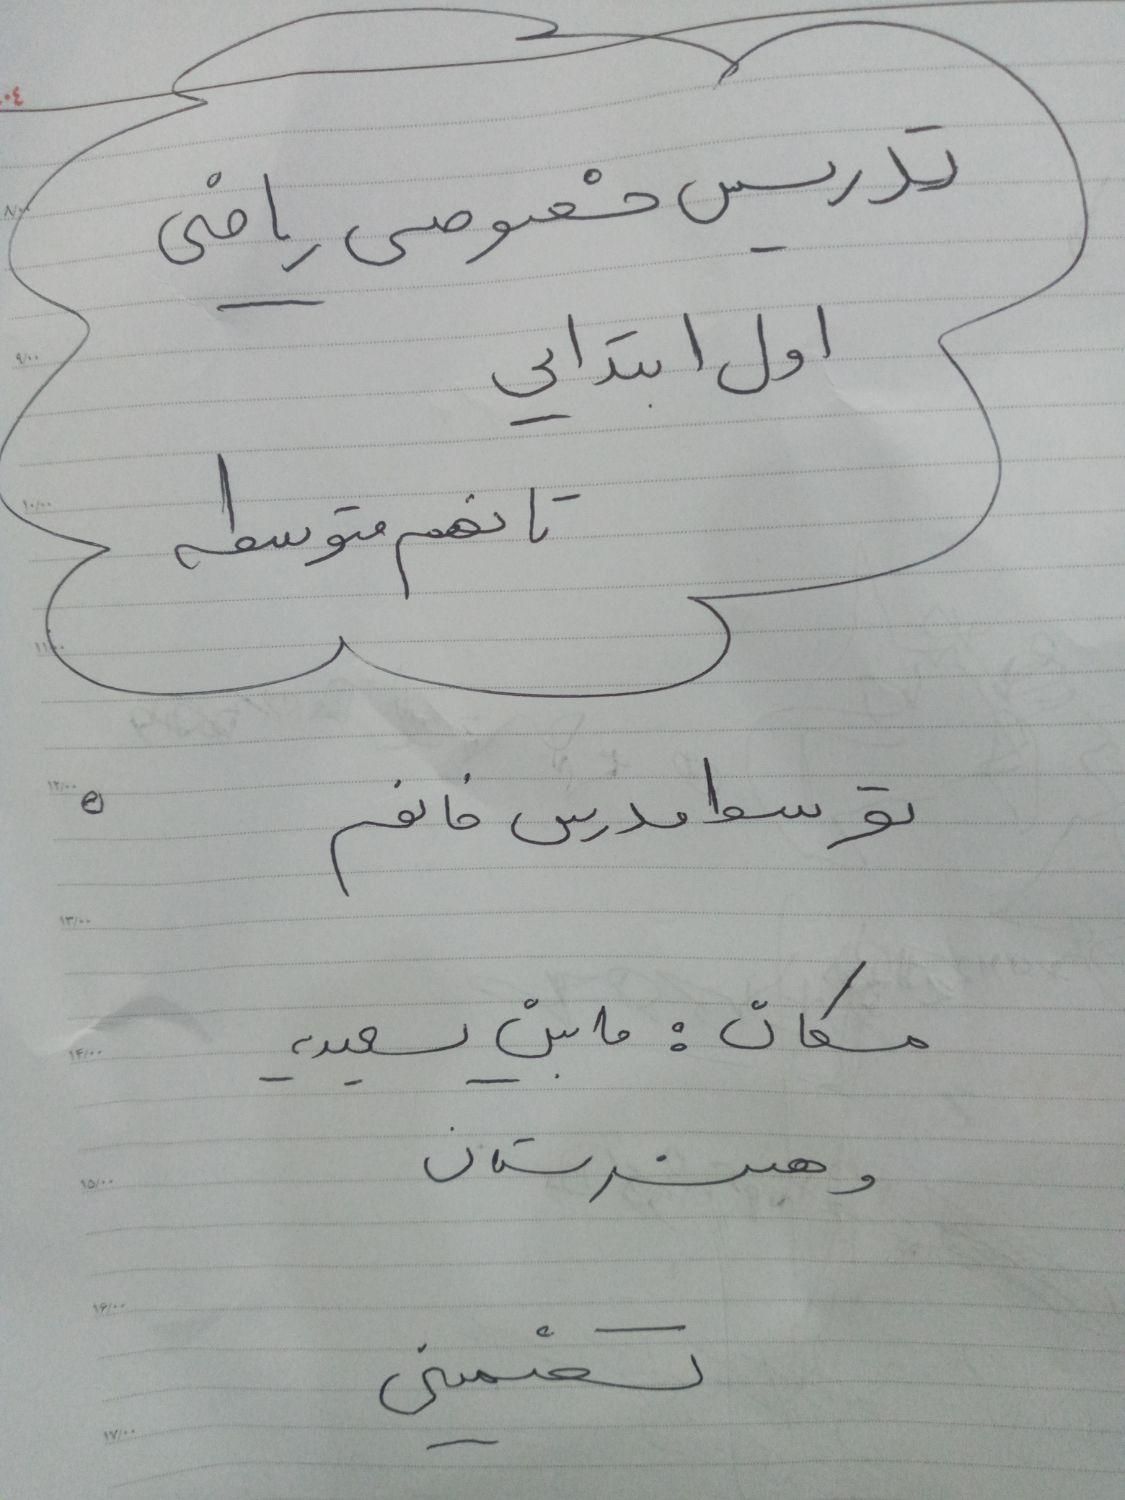 تدریس خصوصی ریاضی
اول ابتدایی
تا نهم متوسطه
توسط مدرس خانم
مکان : مابین سعیدیه
و هنرستان
تضمینی
۸/۰۰
۹/۰۰
۱۰/۰۰
۱۱/۰۰
۱۲/۰۰
۱۳/۰۰
۱۴/۰۰
۱۵/۰۰
۱۶/۰۰
۱۷/۰۰